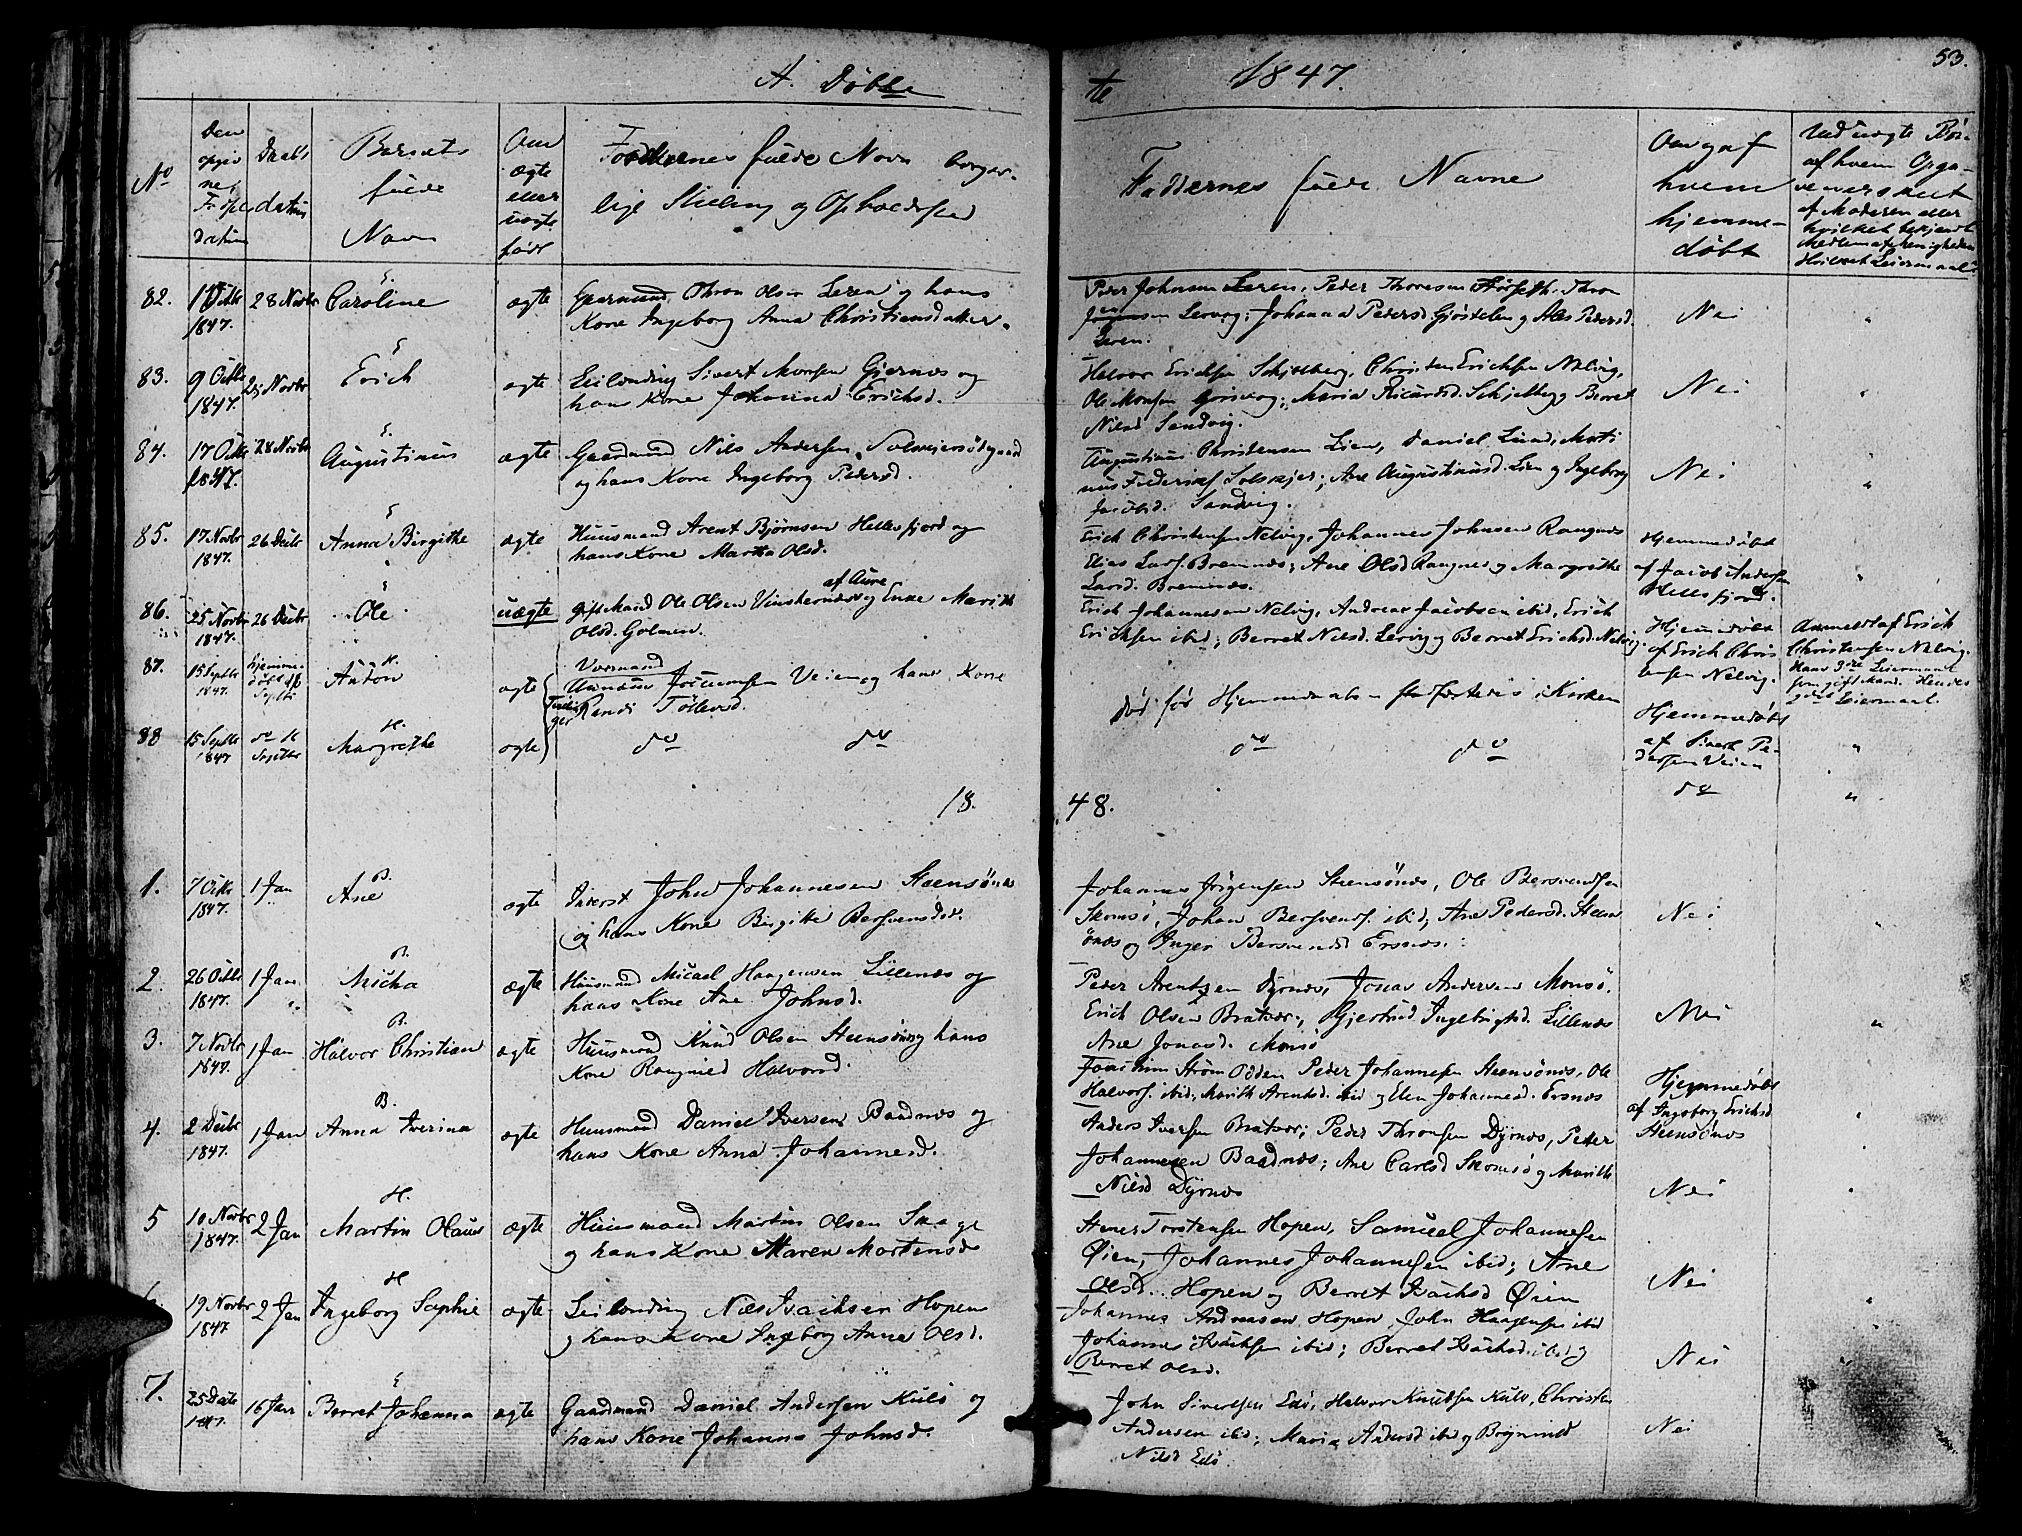 53.
A. Døbte 1847.
No
Den opgivne Fødselsdatum
Daabsdatum
Barnets fulde Navn
Om ægte eller uægte født
Forældrenes fulde Navn borgerlige Stilling og Opholdssted
Faddernes fulde Navne
Om og af hvem hjemmedøbt
82. 28 Novbr Caroline ægte og hans
1847. Kone Ingeborg Anna Christiansd
Peder Johnsen Leren, Peder Thoresen
Lervog; Johanna Pedersd. og Pedersd.
Leren.
Nei
83. 9 Octbr Novbr Erich ægte Leilænding Sivert Monsen Gjernæs og
1847. hans Kone Johanna Erichsd.
Halvor Erichsen Schjelberg, Christen Erichsen Nelvig,
Ole Monsen Maria Ricardsd. Schjelberg Berret
Nilsd Sandvig.
Nei
84. 17 Octbr 28 Novbr Augustinus ægte Gaardmand Nils Andersen
1847. og hans Kone Ingeborg Pedersd.
Augustinus Christensen Lien, Daniel Lund, Marti
nus Solskjer; Ane Augustinusd. Lien og Ingeborg
Jacobsd. Sandvig.
Nei
85. 17 Novbr 26 Decbr Anna Birgithe ægte Huusmand Arent Bjørnsen Hellesfjord og
1847. hans Kone Martha Olsd.
Erich Christensen Nelvig, Johannes Johnsen Rangnes
Elias Lars. Bremnæs; Ane Olsd Rangnes og Margrethe
Larsd. Bremnæs.
Hjemmedøbt
af Jacob Andersen
Hellesfjord.
86. 25 Novbr 26 Decbr Ole uægte gift Mand Ole Olsen Vinsternæs af Aure og Enke Marith
1847. Olsd. Golmen.
Erich Johannesen Nelvig, Andreas Jacobsen ibid, Erich
Erichsen ibid; Berret Nilsd. Lervig og Berret Erichsd. Nelvig.
Hjemmedøbt
af Erich Chris
tensen Nelvig.
Anmeldt af Erich
Christensen Nelvig.
Hans 3die Leiermaal
som gift Mand. Hendes
Leiermaal.
87. 15 Septbr Hjemme H.
1847. døbt Anton ægte og hans Kone
Septbr Randi Tøllevsd.
Tvillinger
død før i Kirken
Hjemmedøbt
af Sivert Pe
dersen Veien
88 15 Septbr do H.
1847 Septbr Margrethe ægte do do
do do
do
1848.
1. 7 Octbr 1 Jan B. Ane ægte Inderst John Johannesen Steensønæs
1847. og hans Kone Birgithe Bersvendsdr.
Johannes Jørgensen Steensønæs, Ole Bersvendsen
Skomsø, Johan Bersvends. ibid; Ane Pedersd. Steen
sønæs og Inger Bersvendsd Ersnæs.
Nei
2. 26 Octbr 1 Jan B. Micha ægte Huusmand Micael Haagensen Lillenæs og
1847. hans Kone Ane Johnsd.
Peder Arentzen Dyrnæs, Jonas Andersen Monsø,
Erich Olsen Bratvær, Gjertrud Ingebrigtsd. Lillenæs
Ane Jonasd. Monsø
Nei
3. 7 Novbr 1 Jan B. Halvor Christian ægte Huusmand Knud Olsen Steensønæs og hans
1847. Kone Rangnild Halvorsd.
Joachim Strøm Odden Peder Johannesen Steensønæs, Ole
Halvors. ibid; Marith Arentsd. ibid og Elen Johannesd. Ersnæs
Hjemmedøbt
af Ingeborg Erichsd
Steensønæs
4. 2 Decbr 1 Jan B. Anna Iverina ægte Huusmand Daniel Iversen Baadnæs og
1847. hans Kone Anna Johannesd.
Anders Iversen Bratvær; Peder Thronsen Dyrnæs, Peder
Johannesen Baadnæs; Ane Carlsd Skomsø og Marith
Nilsd Dyrnæs
Nei
5 10 Novbr 2 Jan H. Martin Olaus ægte Huusmand Martin Olsen Skage
1847. og hans Kone Maren Mortensd
Stener Torstensen Hopen, Samuel Johannesen
Øien, Johannes Johannesen ibid; Ane
Olsd. Hopen og Berret Isachsd Øien
Nei
19 Novbr 2 Jan H Ingeborg Sophie ægte Leilænding Nils Isachsen Hopen
1847 og hans Kone Ingeborg Anna Olsd.
Johannes Andreasen Hopen, John Haagensen ibid
Johannes Isachsen ibid; Berret Isachsd. ibid og
Berret Olsd.
Nei
7. 25 Decbr 16 Jan Berret Johanna ægte Gaardmand Daniel Andersen Kulø og
1847. hans Kone Johanna Johnsd.
John Sivertsen Edø, Halvor Knudsen Kulø, Christen
Andersen ibid; Maria Andersd ibid og Brynild
Nilsd Edø.
Nei